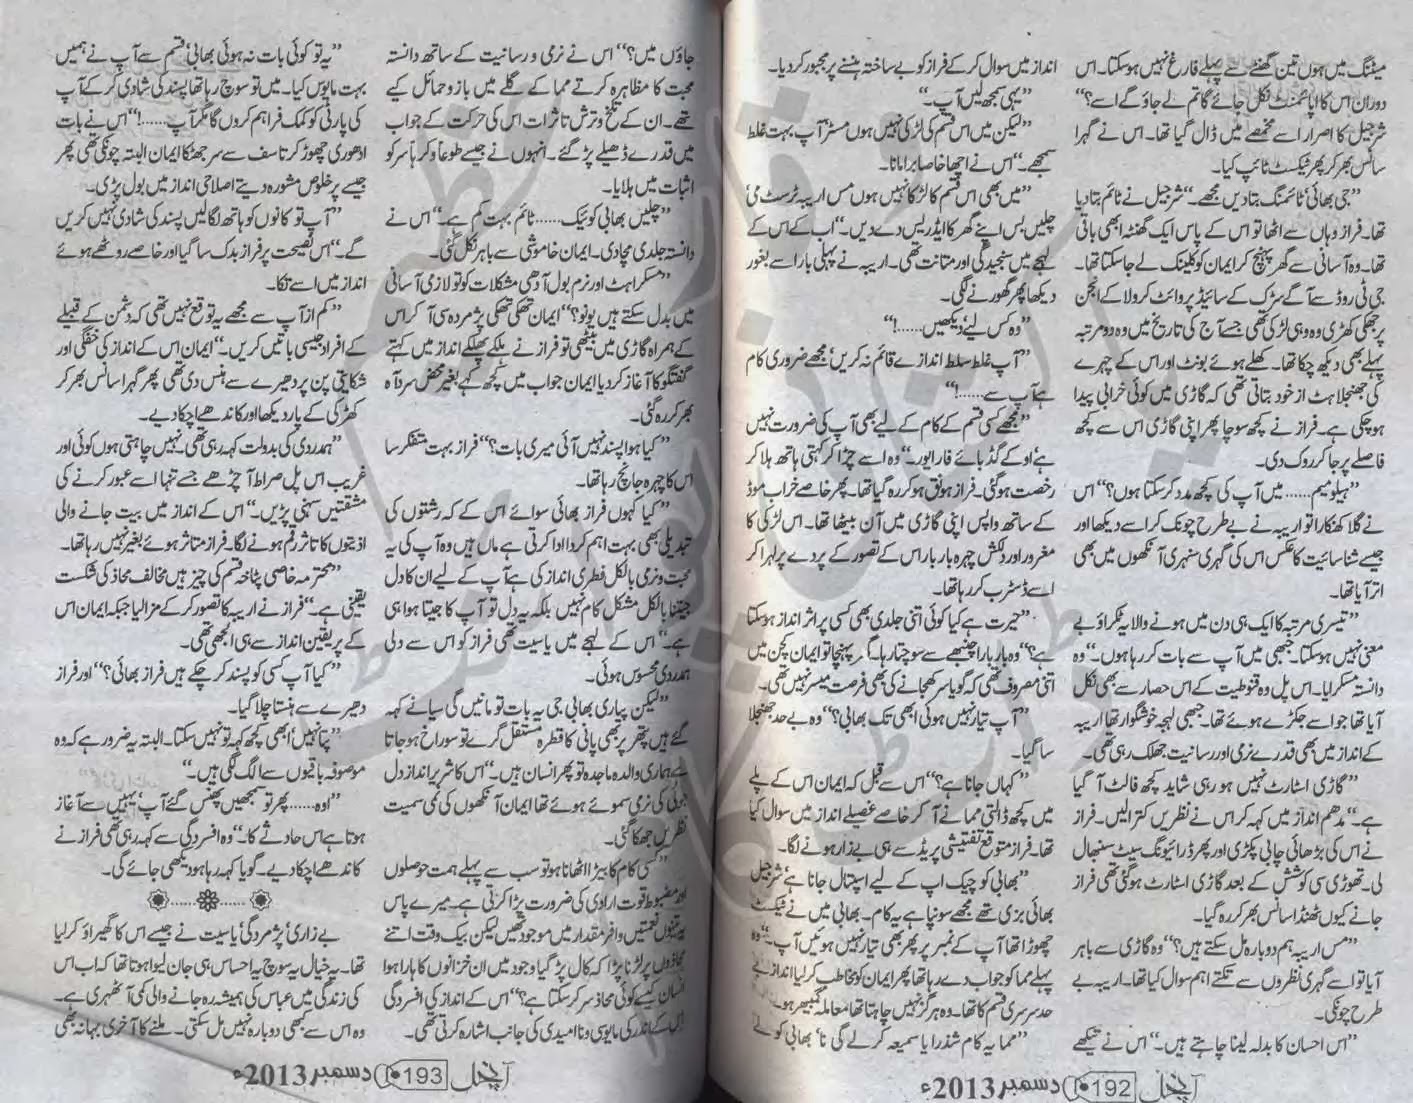 میٹنگ میں ہوں تین گھنٹے سے پہلے فارغ نہیں ہوسکتا۔ اس
دوران اس کا اپائنمنٹ نکل جائے گا تم لے جاؤ گے اسے؟‘‘
شرجیل کا اصرار اسے مخمصے میں ڈال گیا تھا۔ اس نے گہرا
سانس بھر کر پھر ٹیکسٹ ٹائپ کیا۔
’’جی بھائی‘ ٹائمنگ بتادیں مجھے۔‘‘ شرجیل نے ٹائم بتادیا
تھا۔ فراز وہاں سے اٹھا تو اس کے پاس ایک گھنٹہ ابھی باقی
تھا۔ وہ آسانی سے گھر پہنچ کر ایمان کو کلینک لے جاسکتا تھا۔
جی ٹی روڈ سے آگے سڑک کے سائیڈ پر وائٹ کرولا کے انجن
پر جھکی کھڑی وہ وہی لڑکی تھی جسے آج کی تاریخ میں وہ دو مرتبہ
پہلے بھی دیکھ چکا تھا۔ کھلے ہوئے بونٹ اور اس کے چہرے
کی جھنجلاہٹ از خود بتاتی تھی کہ گاڑی میں کوئی خرابی پیدا
ہوچکی ہے۔ فراز نے کچھ سوچا پھر اپنی گاڑی اس سے کچھ
فاصلے پر جا کر روک دی۔
’’ہیلو میم...... میں آپ کی کچھ مدد کرسکتا ہوں؟‘‘ اس
نے گلا کھنکارا تو اریبہ نے بے طرح چونک کر اسے دیکھا اور
جیسے شناسائیت کا عکس اس کی گہری سنہری آنکھوں میں بھی
اتر آیا تھا۔
’’تیسری مرتبہ کا ایک ہی دن میں ہونے والا یہ ٹکراؤ بے
معنی نہیں ہوسکتا۔ جبھی میں آپ سے بات کر رہا ہوں۔‘‘ وہ
دانستہ مسکرایا۔ اس پل وہ قنوطیت کے اس حصار سے بھی نکل
آیا تھا جو اسے جکڑے ہوئے تھا۔ جبھی لہجہ خوشگوار تھا اریبہ
کے انداز میں بھی قدرے نرمی اور رسانیت جھلک رہی تھی۔
’’گاڑی اسٹارٹ نہیں ہو رہی شاید کچھ فالٹ آگیا
ہے۔‘‘ مدھم انداز میں کہہ کر اس نے نظریں کترا لیں۔ فراز
نے اس کی بڑھائی چابی پکڑی اور پھر ڈرائیونگ سیٹ سنبھال
لی۔ تھوڑی سی کوشش کے بعد گاڑی اسٹارٹ ہوگئی تھی فراز
جانے کیوں ٹھنڈا سانس بھر کر رہ گیا۔
’’مس اریبہ ہم دوبارہ مل سکتے ہیں؟‘‘ وہ گاڑی سے باہر
آیا تو اسے گہری نظروں سے تکتے اہم سوال کیا تھا۔ اریبہ بے
طرح چونکی۔
’’اس احسان کا بدلہ لینا چاہتے ہیں۔‘‘ اس نے تیکھے
انداز میں سوال کرکے فراز کو بے ساختہ ہنسنے پر مجبور کردیا۔
’’یہی سمجھ لیں آپ۔‘‘
’’لیکن میں اس قسم کی لڑکی نہیں ہوں مسٹر آپ بہت غلط
سمجھے۔‘‘ اس نے اچھا خاصا برا مانا۔
’’میں بھی اس قسم کا لڑکا نہیں ہوں مس اریبہ ٹرسٹ می‘
چلیں بس اپنے گھر کا ایڈریس دے دیں۔‘‘ اب کے اس کے
لہجے میں سنجیدگی اور متانت تھی۔ اریبہ نے پہلی بار اسے بغور
دیکھا پھر گھورنے لگی۔
’’وہ کس لیے‘ دیکھیں......!‘‘
’’آپ غلط سلط اندازے قائم نہ کریں‘ مجھے ضروری کام
ہے آپ سے......!‘‘
’’مجھے کسی قسم کے کام کے لیے بھی آپ کی ضرورت نہیں
ہے اوکے گڈ بائے فار ایور۔‘‘ وہ اسے چڑا کر کہتی ہاتھ ہلا کر
رخصت ہوگئی۔ فراز ہونق ہو کر رہ گیا تھا۔ پھر خاصے خراب موڈ
کے ساتھ واپس اپنی گاڑی میں آن بیٹھا تھا۔ اس لڑکی کا
مغرور اور دلکش چہرہ بار بار اس کے تصور کے پردے پر لہرا کر
اسے ڈسٹرب کر رہا تھا۔
’’حیرت ہے کیا کوئی اتنی جلدی بھی کسی پر اثر انداز ہوسکتا
ہے؟‘‘ وہ بار بار اچنبھے سے سوچتا رہا۔ گھر پہنچا تو ایمان کچن میں
اتنی مصروف تھی کہ گویا سر کھجانے کی بھی فرصت میسر نہیں تھی۔
’’آپ تیار نہیں ہوئی ابھی تک بھابی؟‘‘ وہ بے حد جھنجلا
سا گیا۔
’’کہاں جانا ہے؟‘‘ اس سے قبل کہ ایمان اس کے پلے
میں کچھ ڈالتی مما نے آکر خاصے غصیلے انداز میں سوال کیا
تھا۔ فراز متوقع تفتیشی پریڈ سے ہی بے زار ہونے لگا۔
’’بھابی کو چیک اپ کے لیے اسپتال جانا ہے‘ شرجیل
بھائی بزی تھے مجھے سونپا ہے یہ کام۔ بھابی میں نے ٹیکسٹ
چھوڑا تھا آپ کے نمبر پر پھر بھی تیار نہیں ہوئیں آپ۔‘‘ وہ
پہلے مما کو جواب دے رہا تھا پھر ایمان کو مخاطب کرلیا انداز بے
حد سرسری قسم کا تھا۔ وہ ہرگز نہیں چاہتا تھا معاملہ گمبھیر ہو۔
’’مما یہ کام شذرا یا سمیعہ کرلے گی نا‘ بھابی کو لے
آنچل 192 دسمبر 2013ء
جاؤں میں؟‘‘ اس نے نرمی و رسانیت کے ساتھ دانستہ
محبت کا مظاہرہ کرتے مما کے گلے میں بازو حمائل کیے
تھے۔ ان کے تلخ و ترش تاثرات اس کی حرکت کے جواب
میں قدرے ڈھیلے پڑ گئے۔ انہوں نے جیسے طوعاً و کرہاً سر کو
اثبات میں ہلایا۔
’’چلیں بھابی کوئیک...... ٹائم بہت کم ہے۔‘‘ اس نے
دانستہ جلدی مچادی۔ ایمان خاموشی سے باہر نکل گئی۔
’’مسکراہٹ اور نرم بول آدھی مشکلات کو تو لازمی آسانی
میں بدل سکتے ہیں یو نو؟‘‘ ایمان تھکی تھکی پژمردہ سی آکر اس
کے ہمراہ گاڑی میں بیٹھی تو فراز نے ہلکے پھلکے انداز میں کہتے
گفتگو کا آغاز کردیا ایمان جواب میں کچھ کہے بغیر محض سرد آہ
بھر کر رہ گئی۔
’’کیا ہوا پسند نہیں آئی میری بات؟‘‘ فراز بہت متفکر سا
اس کا چہرہ جانچ رہا تھا۔
’’کیا کہوں فراز بھائی سوائے اس کے کہ رشتوں کی
تبدیلی بھی بہت اہم کردار ادا کرتی ہے ماں ہیں وہ آپ کی یہ
محبت و نرمی بالکل فطری انداز کی ہے آپ کے لیے ان کا دل
جیتنا بالکل مشکل کام نہیں بلکہ یہ دل تو آپ کا جیتا ہوا ہی
ہے۔‘‘ اس کے لہجے میں یاسیت تھی فراز کو اس سے دلی
ہمدردی محسوس ہوئی۔
’’لیکن پیاری بھابی جی یہ بات تو مانیں گی سیانے کہہ
گئے ہیں پتھر پر بھی پانی کا قطرہ مستقل گرے تو سوراخ ہوجاتا
ہے ہماری والدہ ماجدہ تو پھر انسان ہیں۔‘‘ اس کا شریر انداز دل
جوئی کی نرمی سموئے ہوئے تھا ایمان آنکھوں کی نمی سمیت
نظریں جھکا گئی۔
’’کسی کام کا بیڑا اٹھانا ہو تو سب سے پہلے ہمت حوصلوں
اور مضبوط قوت ارادی کی ضرورت پڑا کرتی ہے۔ میرے پاس
یہ تینوں نعمتیں وافر مقدار میں موجود تھیں لیکن بیک وقت اتنے
محاذوں پر لڑنا پڑا کہ کال پڑ گیا وجود میں ان خزانوں کا ہارا ہوا
انسان کیسے کوئی محاذ سر کرسکتا ہے؟‘‘ اس کے انداز کی افسردگی
اس کے اندر کی مایوسی و نا امیدی کی جانب اشارہ کرتی تھی۔
’’یہ تو کوئی بات نہ ہوئی بھابی‘ قسم سے آپ نے ہمیں
بہت مایوس کیا۔ میں تو سوچ رہا تھا پسند کی شادی کرکے آپ
کی پارٹی کو کمک فراہم کروں گا مگر آپ......!‘‘ اس نے بات
ادھوری چھوڑ کر تاسف سے سر جھٹکا ایمان البتہ چونکی تھی پھر
جیسے پرخلوص مشورہ دیتے اصلاحی انداز میں بول پڑی۔
’’آپ تو کانوں کو ہاتھ لگالیں پسند کی شادی نہیں کریں
گے۔‘‘ اس نصیحت پر فراز بدک سا گیا اور خاصے روٹھے ہوئے
انداز میں اسے تکا۔
’’کم از آپ سے مجھے یہ توقع نہیں تھی کہ دشمن کے قبیلے
کے افراد جیسی باتیں کریں۔‘‘ ایمان اس کے انداز کی خفگی اور
شکایتی پن پر دھیرے سے ہنس دی تھی پھر گہرا سانس بھر کر
کھڑکی کے پار دیکھا اور کاندھے اچکا دیے۔
’’ہمدردی کی بدولت کہہ رہی تھی۔ نہیں چاہتی ہوں کوئی اور
غریب اس پل صراط آ چڑھے جسے تنہا اسے عبور کرنے کی
مشقتیں سہنی پڑیں۔‘‘ اس کے انداز میں بیت جانے والی
اذیتوں کا تاثر رقم ہونے لگا۔ فراز متاثر ہوئے بغیر نہیں رہا تھا۔
’’محترمہ خاصی پٹاخہ قسم کی چیز ہیں مخالف محاذ کی شکست
یقینی ہے۔‘‘ فراز نے اریبہ کا تصور کرکے مزا لیا جبکہ ایمان اس
کے پریقین انداز سے ہی الجھی تھی۔
’’کیا آپ کسی کو پسند کرچکے ہیں فراز بھائی؟‘‘ اور فراز
دھیرے سے ہنستا چلا گیا۔
’’پتا نہیں‘ ابھی کچھ کہہ تو نہیں سکتا۔ البتہ یہ ضرور ہے کہ وہ
موصوفہ باقیوں سے الگ لگی ہیں۔‘‘
’’اوہ...... پھر تو سمجھیں پھنس گئے آپ‘ یہیں سے آغاز
ہوتا ہے اس حادثے کا۔‘‘ وہ افسردگی سے کہہ رہی تھی فراز نے
کاندھے اچکا دیے۔ گویا کہہ رہا ہو دیکھی جائے گی۔
بے زاری‘ پژمردگی‘ یاسیت نے جیسے اس کا گھیراؤ کرلیا
تھا۔ یہ خیال یہ سوچ یہ احساس ہی جان لیوا ہوتا تھا کہ اب اس
کی زندگی میں عباس کی ہمیشہ رہ جانے والی کمی آٹھہری ہے۔
وہ اس سے کبھی دوبارہ نہیں مل سکتی۔ ملنے کا آخری بہانہ بھی
آنچل 193 دسمبر 2013ء